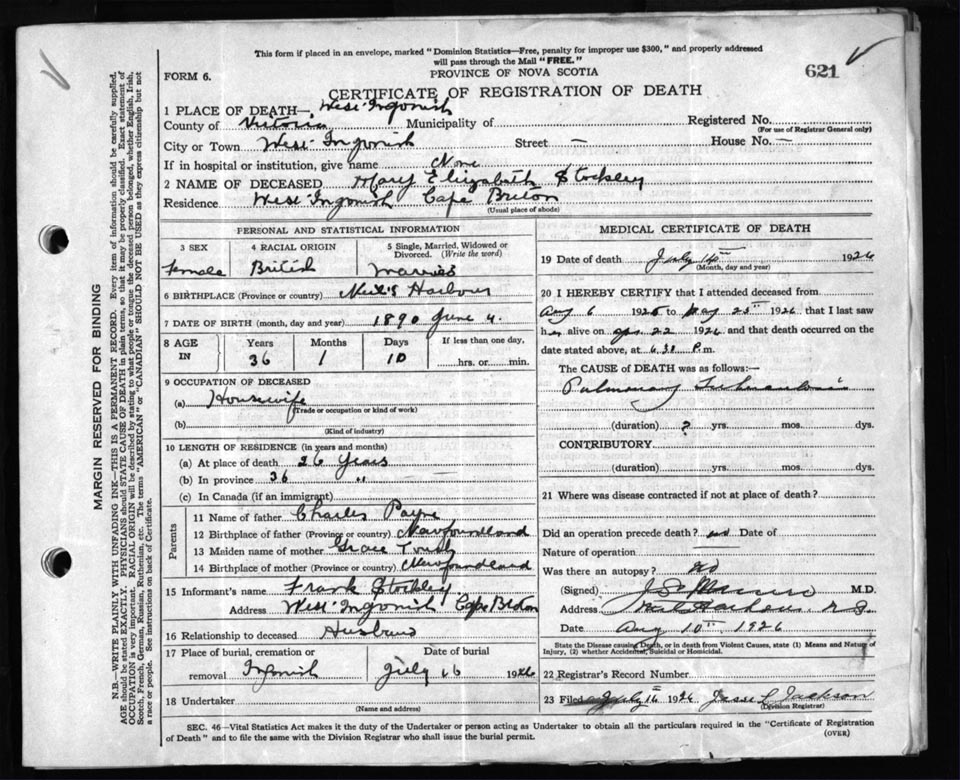 This form if placed in an envelope, marked "Dominion Statistics—Free, penalty for improper use $300," and properly addressed
will pass through the Mail "FREE."
PROVINCE OF NOVA SCOTIA
621
FORM 6.
CERTIFICATE OF REGISTRATION OF DEATH
1 PLACE OF DEATH— West Ingonish
County of Victoria Municipality of Registered No.
(For use of Registrar General only)
City or Town West Ingonish Street — House No. —
If in hospital or institution, give name None
2 NAME OF DECEASED Mary Elizabeth Stockley
Residence West Ingonish Cape Breton
(Usual place of abode)
PERSONAL AND STATISTICAL INFORMATION
3 SEX 4 RACIAL ORIGIN 5 Single, Married, Widowed or
Divorced. (Write the word)
Female British Married
6 BIRTHPLACE (Province or country) Neil's Harbour
7 DATE OF BIRTH (month, day and year) 1890 June 4.
8 AGE IN Years Months Days If less than one day,
36 1 10 hrs. or min.
9 OCCUPATION OF DECEASED
(a) Housewife
(Trade or occupation or kind of work)
(b)
(Kind of industry)
10 LENGTH OF RESIDENCE (in years and months)
(a) At place of death 26 Years
(b) In province 36 "
(c) In Canada (if an immigrant)
Parents
11 Name of father Charles Payne
12 Birthplace of father (Province or country) Newfoundland
13 Maiden name of mother Grace
14 Birthplace of mother (Province or country) Newfoundland
15 Informant's name Frank Stockley
Address West Ingonish Cape Breton
16 Relationship to deceased Husband
17 Place of burial, cremation or Date of burial
removal Ingonish July 16 1926
18 Undertaker
(Name and address)
MEDICAL CERTIFICATE OF DEATH
19 Date of death July 14th 1926
(Month, day and year)
20 I HEREBY CERTIFY that I attended deceased from
Aug 6 1925 to May 25th 1926 that I last saw
her alive on 22 1926 and that death occurred on the
date stated above, at 6.30 P.m.
The CAUSE of DEATH was as follows:—
Pulmonary Tuberculosis
(duration) ? yrs. mos. dys.
CONTRIBUTORY
(duration) yrs. mos. dys.
21 Where was disease contracted if not at place of death?
Did an operation precede death? no Date of
Nature of operation
Was there an autopsy? no
(Signed) M.D.
Address Neils Harbour N.S.
Date Aug 10th 1926
State the Disease causing Death, or in death from Violent Causes, state (1) Means and Nature of
Injury, (2) whether Accidental, Suicidal or Homicidal.
22 Registrar's Record Number
23 Filed July 16 1926 Jesse L Jackson
(Division Registrar)
SEC. 46—Vital Statistics Act makes it the duty of the Undertaker or person acting as Undertaker to obtain all the particulars required in the "Certificate of Registration
of Death" and to file the same with the Division Registrar who shall issue the burial permit.
(OVER)
MARGIN RESERVED FOR BINDING
N.B.—WRITE PLAINLY WITH UNFADING INK—THIS IS A PERMANENT RECORD. Every item of information should be carefully supplied.
AGE should be stated EXACTLY. PHYSICIANS should STATE CAUSE OF DEATH in plain terms, so that it may be properly classified. Exact statement of
OCCUPATION is very important. RACIAL ORIGIN will be described by stating to what people or tongue the deceased person belonged, whether English, Irish,
Scotch, French, German, Russian, Ruthenian, etc. The terms "AMERICAN" or "CANADIAN" SHOULD NOT BE USED as they express citizenship but not
a race or people. See instructions on back of Certificate.